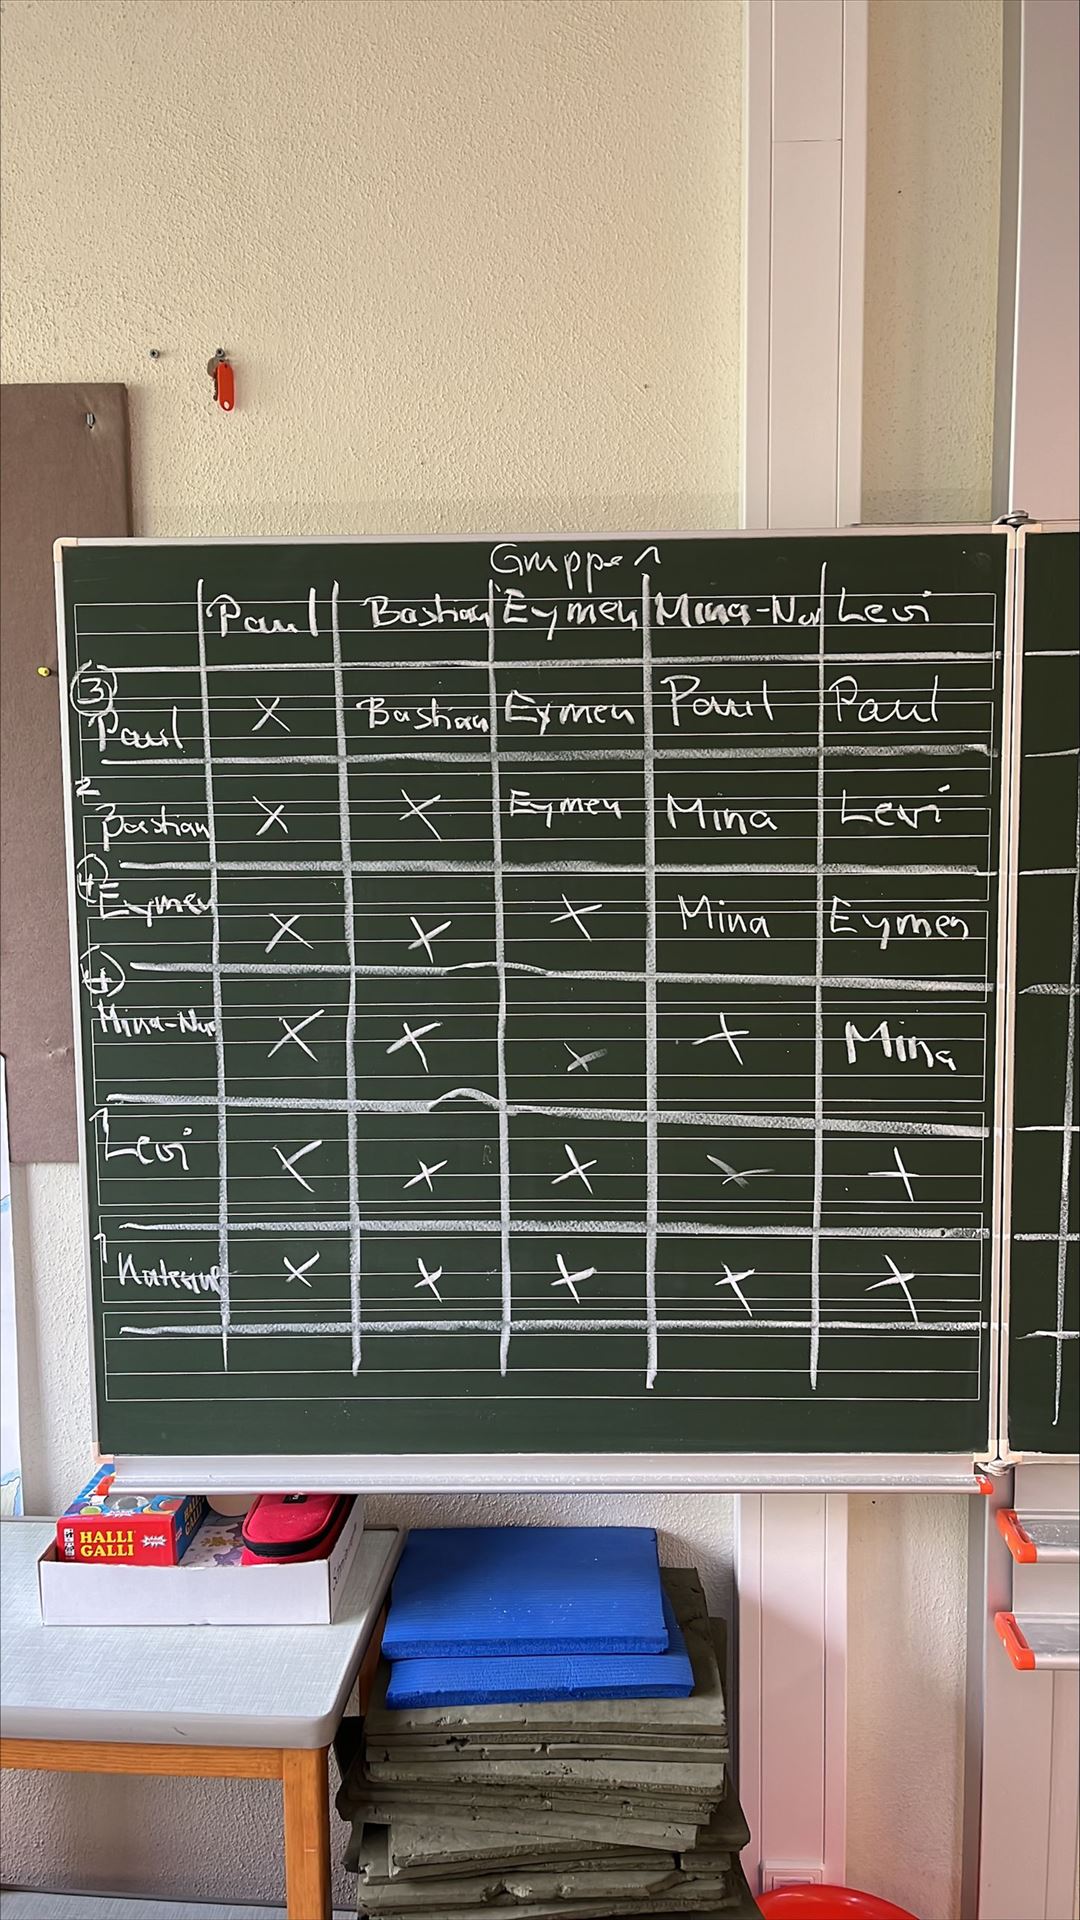 Gruppe 1
Paul Bastian Eymen Mina-Nur Levi
3
Paul X Bastian Eymen Paul Paul
2
Bastian X X Eymen Mina Levi
4
Eymen X X X Mina Eymen
4
Mina-Nur X X X X Mina
1
Levi X X X X X
1
X X X X X
HALLI
GALLI